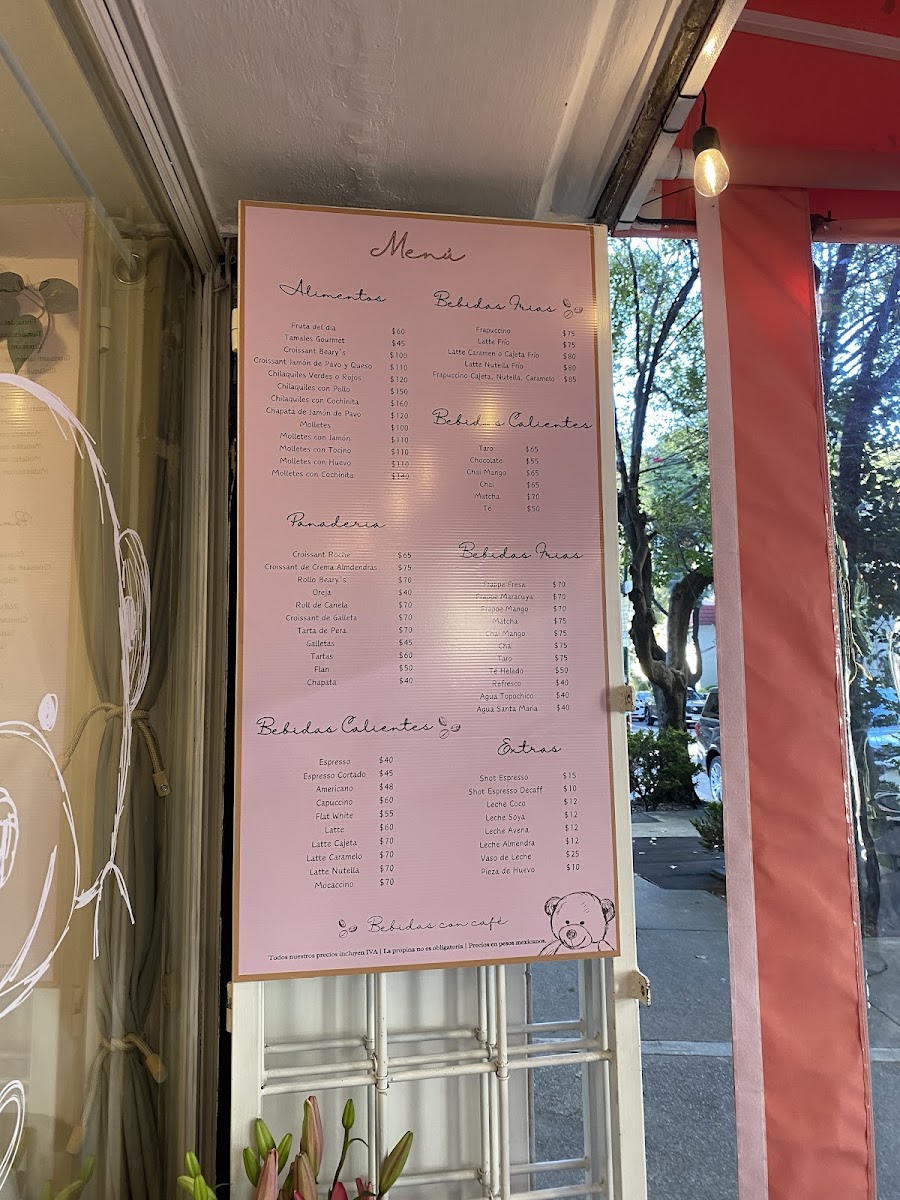 Menú
Alimentos
Fruta del día $60
Tamales Gourmet $45
Croissant Beary´s $100
Croissant Jamón de Pavo y Queso $110
Chilaquiles Verdes o Rojos $120
Chilaquiles con Pollo $150
Chilaquiles con Cochinita $160
Chapata de Jamón de Pavo $120
Molletes $100
Molletes con Jamón $110
Molletes con Tocino $110
Molletes con Huevo $110
Molletes con Cochinita $140
Panaderia
Croissant Roche $65
Croissant de Crema Almdendras $75
Rollo Beary´s $70
Oreja $40
Roll de Canela $70
Croissant de Galleta $70
Tarta de Pera $70
Galletas $45
Tartas $60
Flan $50
Chapata $40
Bebidas Calientes
Espresso $40
Espresso Cortado $45
Americano $48
Capuccino $60
Flat White $55
Latte $60
Latte Cajeta $70
Latte Caramelo $70
Latte Nutella $70
Mocaccino $70
Bebidas Frias
Frapuccino $75
Latte Frío $75
Latte Caramen o Cajeta Frío $80
Latte Nutella Frío $80
Frapuccino Cajeta, Nutella, Caramelo $85
Bebidas Calientes
Taro $65
Chocolate $55
Chai Mango $65
Chai $65
Matcha $70
Té $50
Bebidas Frias
Frappe Fresa $70
Frappe Maracuya $70
Frappe Mango $70
Matcha $75
Chai Mango $75
Chai $75
Taro $75
Té Helado $50
Refresco $40
Agua Topochico $40
Agua Santa Maria $40
Extras
Shot Espresso $15
Shot Espresso Decaff $10
Leche Coco $12
Leche Soya $12
Leche Avena $12
Leche Almendra $12
Vaso de Leche $25
Pieza de Huevo $10
Bebidas con café
Todos nuestros precios incluyen IVA | La propina no es obligatoria | Precios en pesos mexicanos.